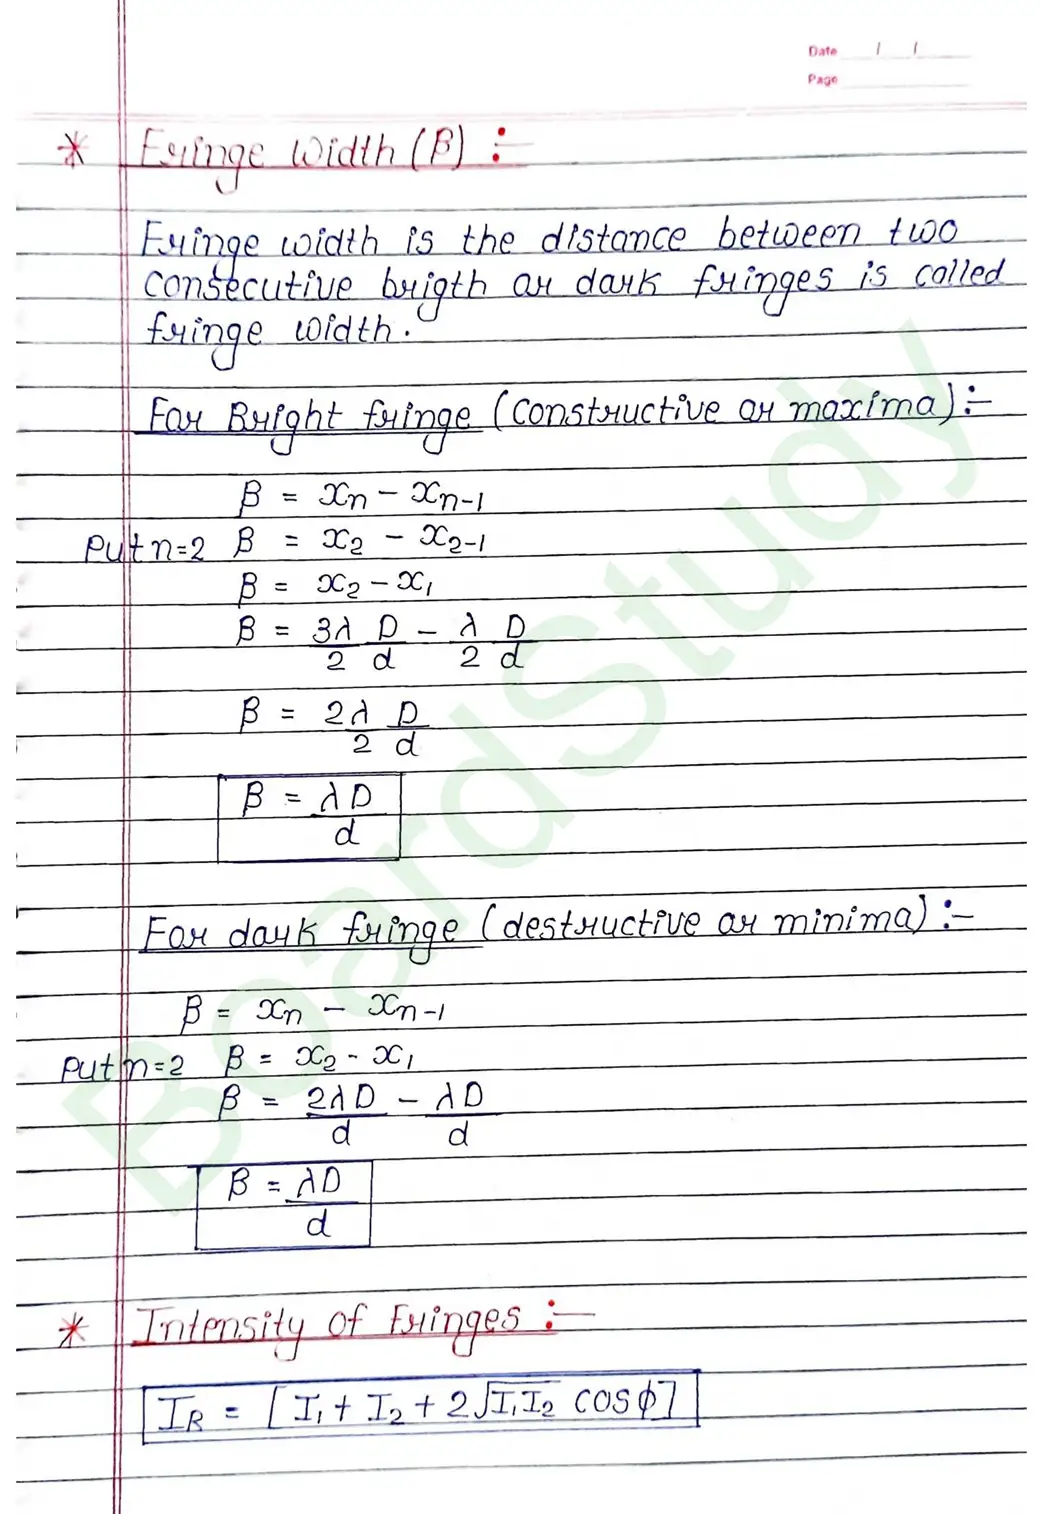 Date / /
Page
* Fringe Width (β) :-
Fringe width is the distance between two
consecutive brigth or dark fringes is called
fringe width.
For Bright fringe (constructive or maxima) :-
β = xₙ - xₙ₋₁
Put n=2 β = x₂ - x₂₋₁
β = x₂ - x₁
β = 3λ/2 D/d - λ/2 D/d
β = 2λ/2 D/d
β = λD/d
For dark fringe (destructive or minima) :-
β = xₙ - xₙ₋₁
Put n=2 β = x₂ - x₁
β = 2λD/d - λD/d
β = λD/d
* Intensity of Fringes :-
I_R = [I₁ + I₂ + 2√I₁I₂ cos ϕ]
BoardStudy